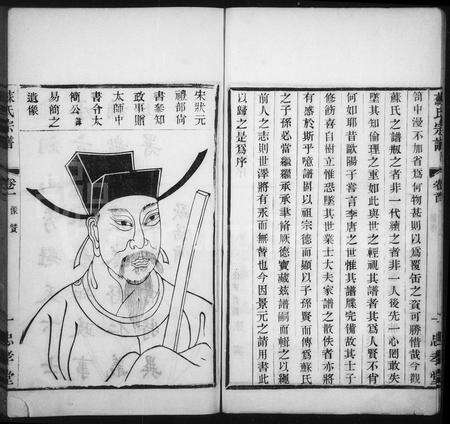 蘇氏宗譜
卷首
一
忠孝堂
笥中漫不加省爲何物甚則以爲覆缶之資可勝惜哉今觀
蘇氏之譜甄之者非一代續之者非一人後先一心罔敢失
墜其知倫理之重如此與世之輕視其譜者其爲人賢不肖
何如耶昔歐陽子嘗言李唐之世惟其譜牒完備故其士子
修飭喜自樹立惟恐墜其世業士大夫家譜之散佚者亦將
有感於斯乎噫譜固以祖宗德而顯以子孫賢而傳爲蘇氏
之子孫必當繼繼承承聿脩厥德寶藏茲譜嗣而輯之以繩
前人之志則世澤將有永而無替也今因景元之請用書此
以歸之是爲序
宋狀元
禮部尙
書參知
政事贈
太師中
書令太
簡公諱
易簡之
遺像
蘇氏宗譜
卷一
像贊
一
忠孝堂